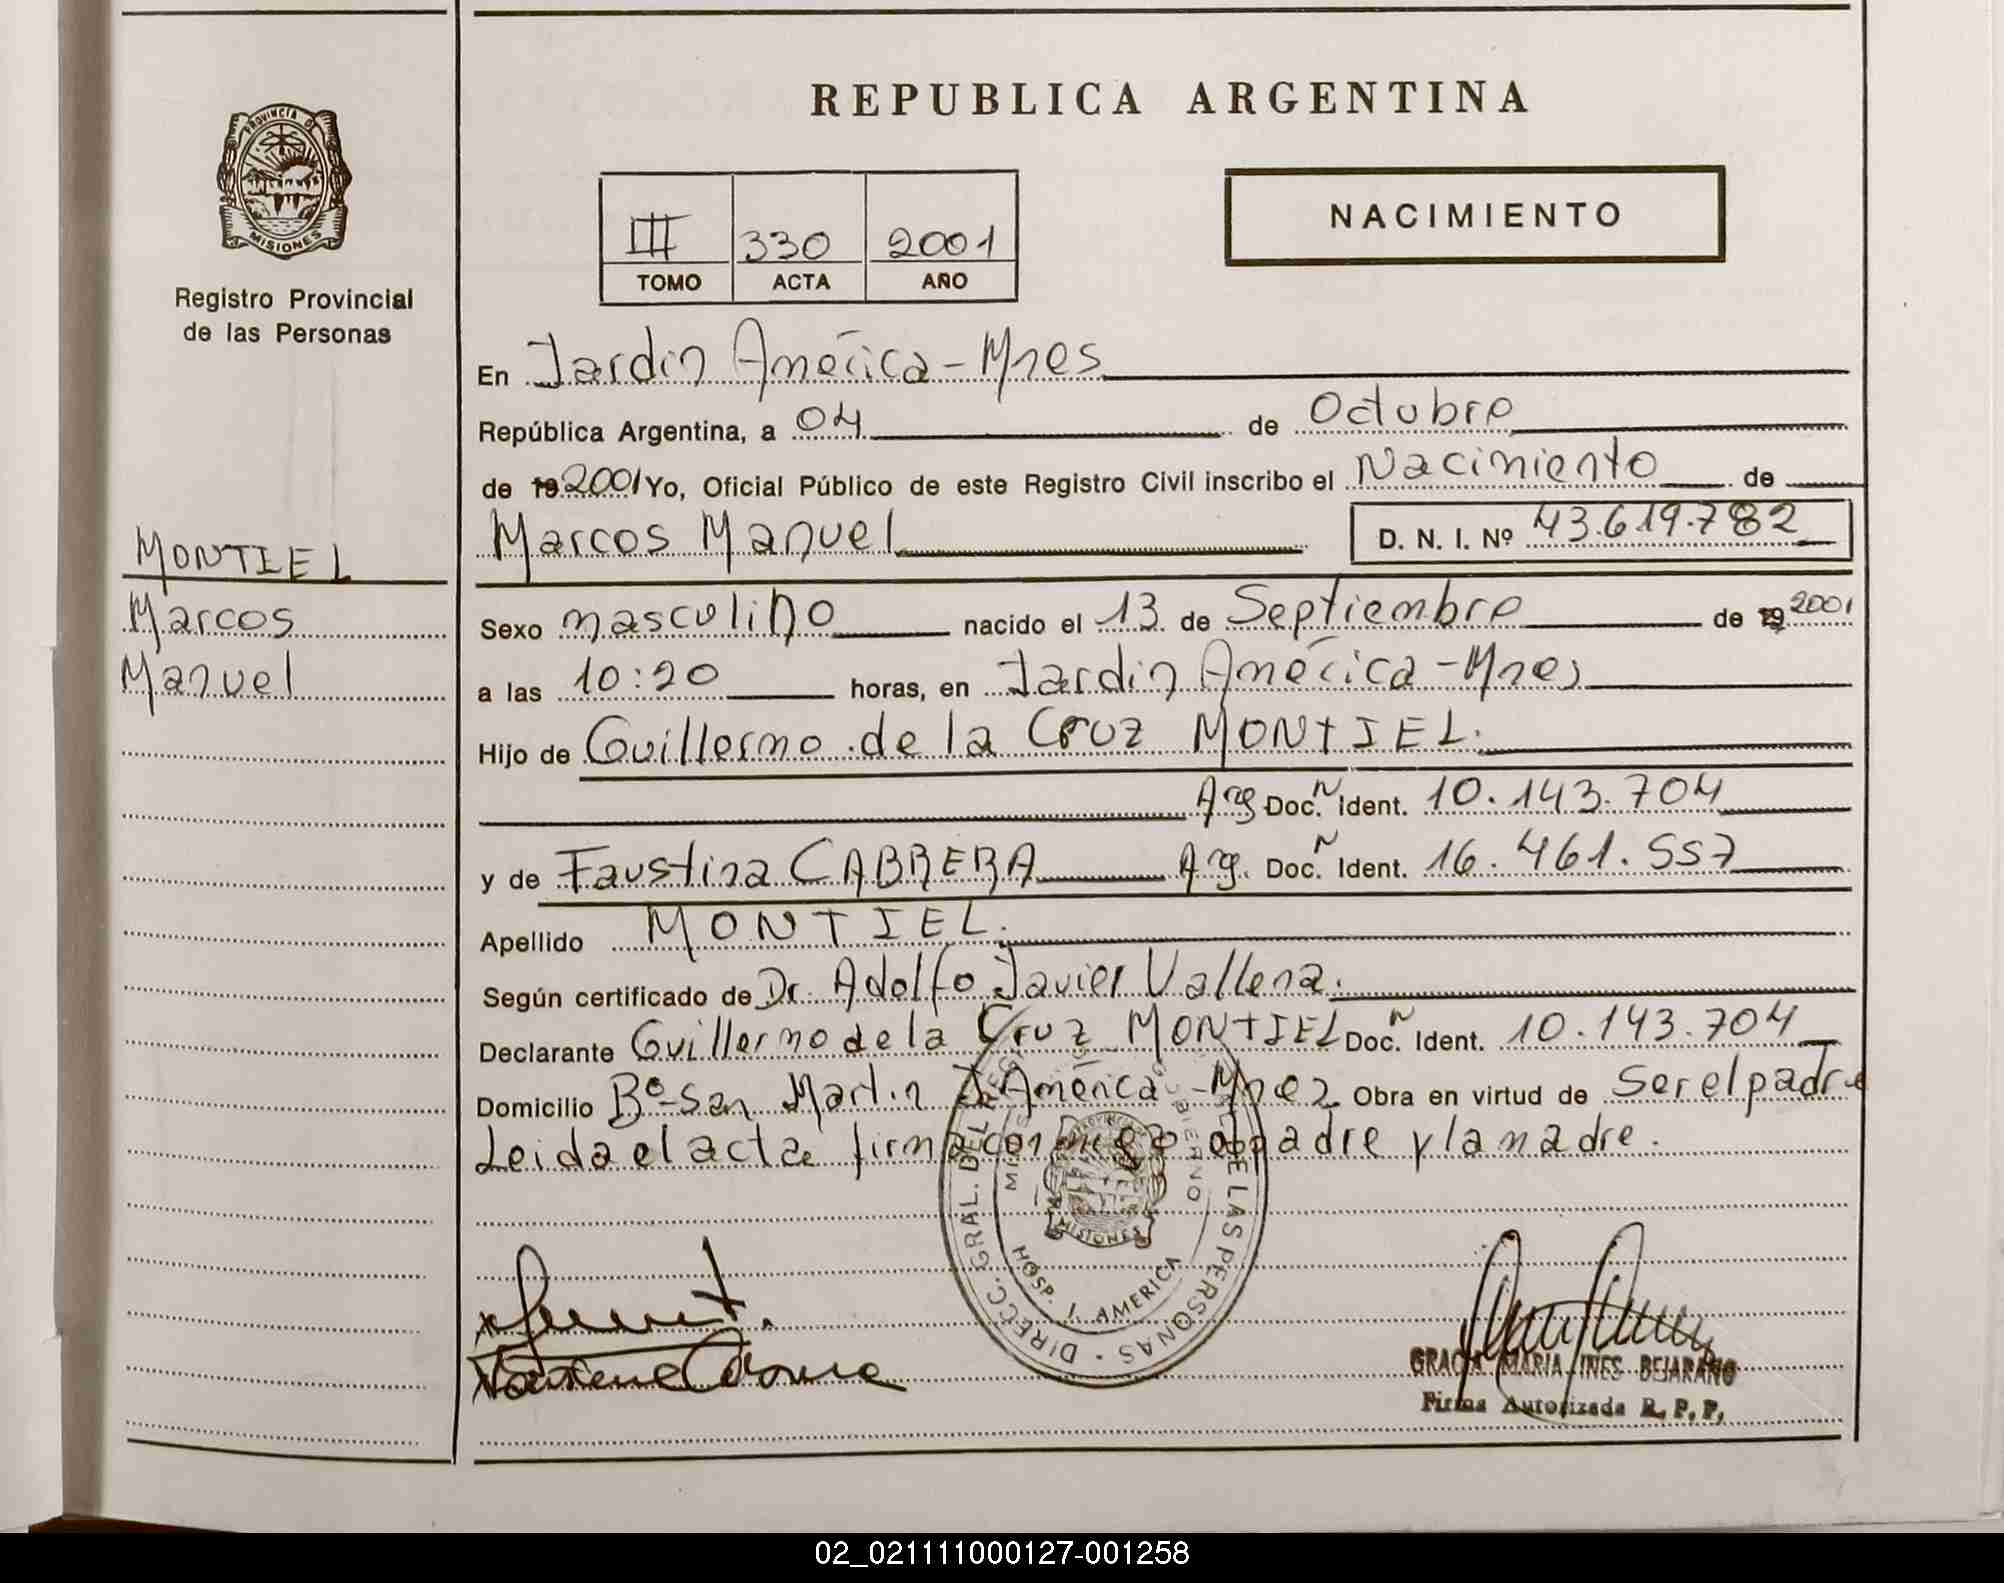 REPUBLICA ARGENTINA
PROVINCIA DE
MISIONES
Registro Provincial
de las Personas
III 330 2001
TOMO ACTA AÑO
NACIMIENTO
En Jardin América - Mnes
República Argentina, a 04 de Octubre
de 19 2001 Yo, Oficial Público de este Registro Civil inscribo el Nacimiento de
Marcos Manuel D. N. I. Nº 43.619.782
MONTIEL
Marcos
Manuel
Sexo masculino nacido el 13 de Septiembre de 19 2001
a las 10:20 horas, en Jardin América - Mnes
Hijo de Guillermo de la Cruz MONTIEL.
Arg Doc. N Ident. 10.143.704
y de Faustina CABRERA Arg. Doc. N Ident. 16.461.557
Apellido MONTIEL.
Según certificado de Dr. Adolfo Javier Vallena.
Declarante Guillermo de la Cruz MONTIEL Doc. N Ident. 10.143.704
Domicilio Bº San Martin J. América - Mnez Obra en virtud de Ser el padre
Leida el acta firma conmigo el padre y la madre.
DIRECC. GRAL. DEL DE LAS PERSONAS
HOSP. J. AMERICA
MISIONES
GRACIA MARIA INES BEJARANO
Firma Autorizada R. P. P.
02_021111000127-001258